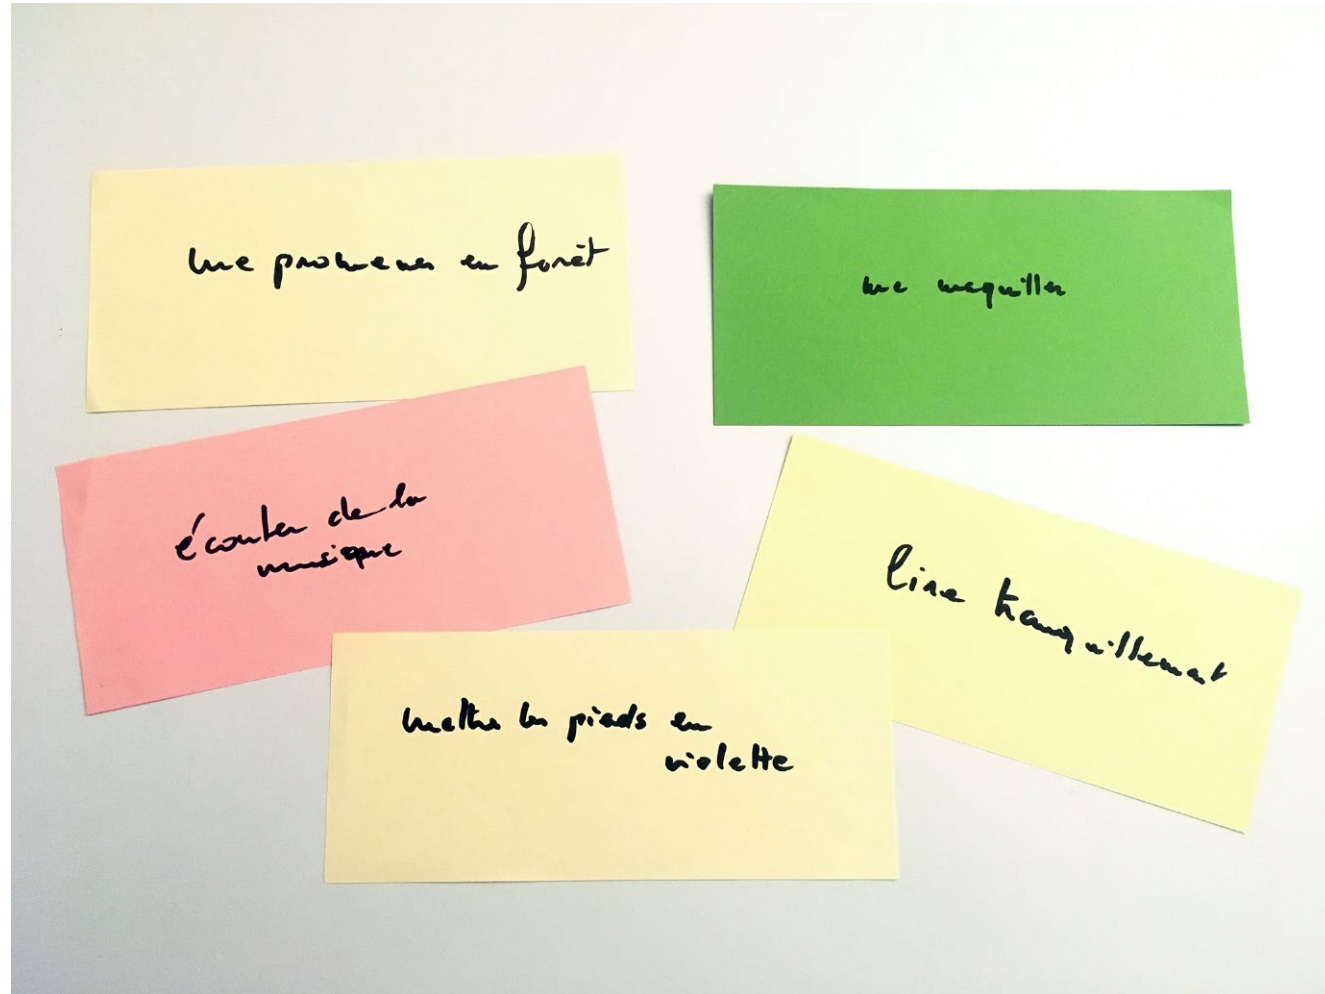 me promener en forêt
me maquiller
écouter de la
musique
lire tranquillement
mettre les pieds en
violette